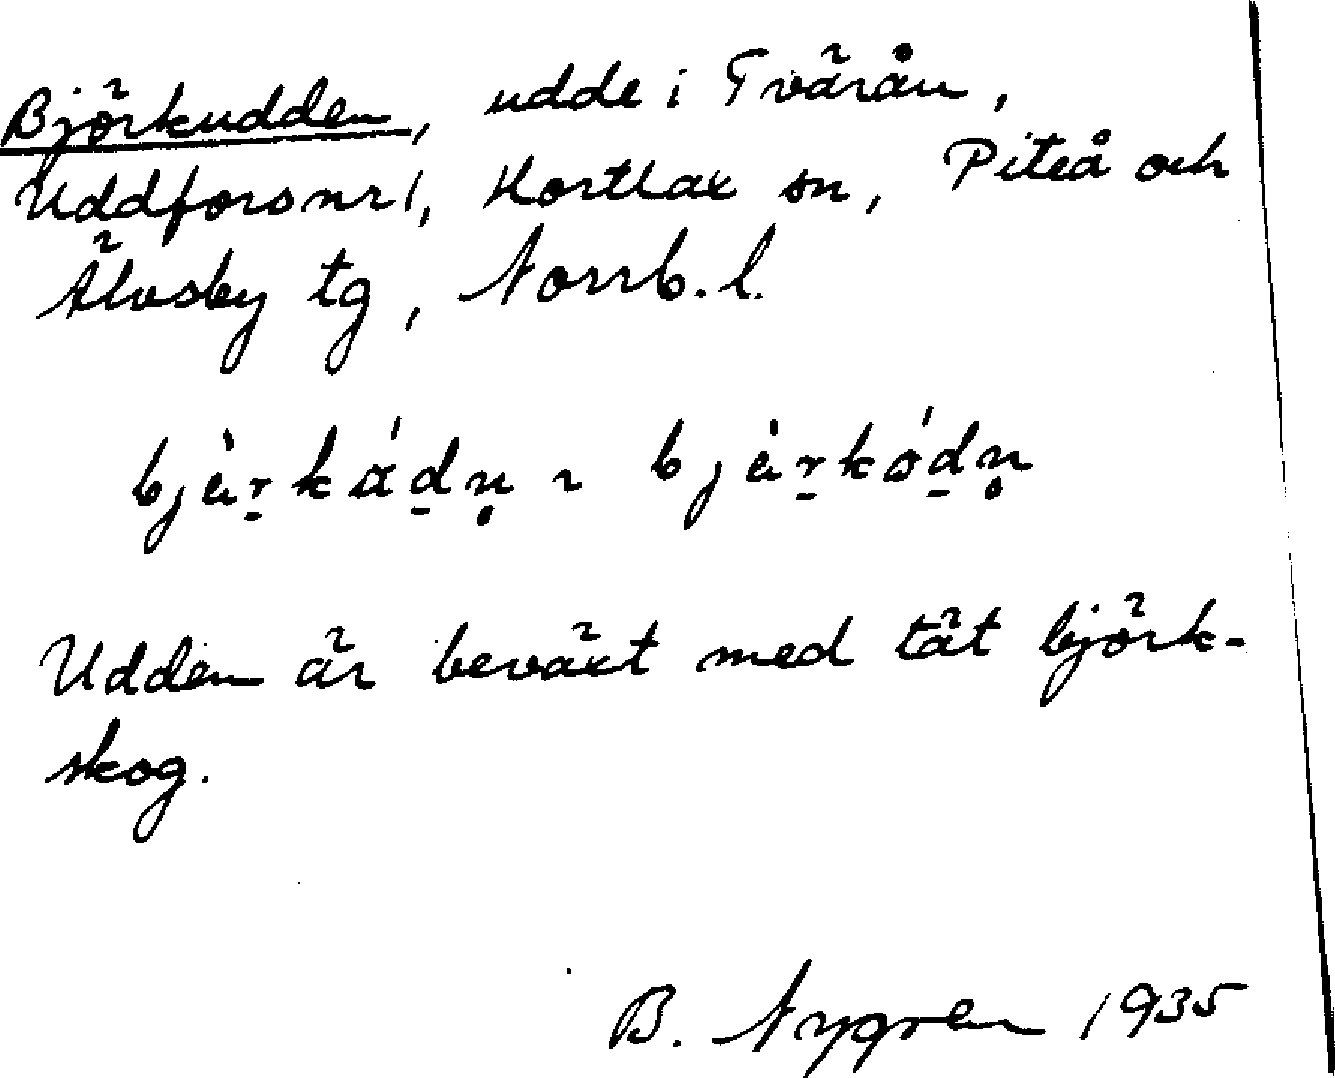 Björkudden, udde i Tvärån,
Uddfors nr 1, Hortlax sn, Piteå och
Älvsby tg, Norrb. l.
bjèr̠kád̠n̥ ~ bjèr̠kód̠n̥
Udden är beväxt med tät björk-
skog.
B. Nygren 1935